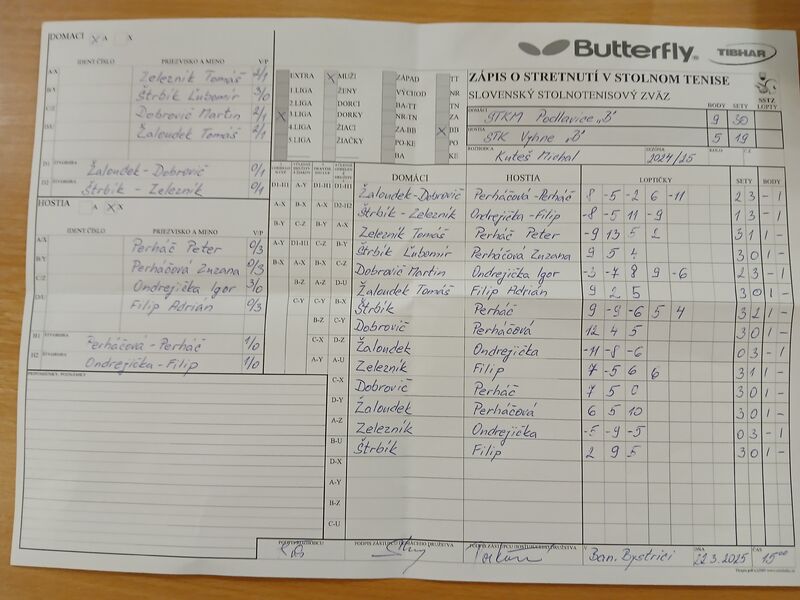 DOMACI X A X
Butterfly
TIBHAR
IDENT.ČÍSLO PRIEZVISKO A MENO V/P
A/X Železník Tomáš 2/1
B/Y Štrbík Ľubomír 3/0
C/Z Dobrovič Martin 2/1
D/U Žaloudek Tomáš 2/1
D1 ŠTVORHRA Žaloudek - Dobrovič 0/1
D2 ŠTVORHRA Štrbík - Železník 0/1
EXTRA X MUŽI ZÁPAD TT
1.LIGA ŽENY VÝCHOD NR
2.LIGA DORCI BA-TT TN
X 3.LIGA DORKY NR-TN ZA
4.LIGA ŽIACI ZA-BB X BB
5.LIGA ŽIAČKY PO-KE PO
BA KE
ZÁPIS O STRETNUTÍ V STOLNOM TENISE
SLOVENSKÝ STOLNOTENISOVÝ ZVÄZ
SSTZ
LOPTY
BODY SETY
DOMÁCI STKM Podlavice „B" 9 30
HOSTIA STK Vyhne „B" 5 19
ROZHODCA Kuteš Michal SEZÓNA 2024/25 KOLO Č.Z.
HOSTIA A X X
IDENT.ČÍSLO PRIEZVISKO A MENO V/P
A/X Perháč Peter 0/3
B/Y Perháčová Zuzana 0/3
C/Z Ondrejička Igor 3/0
D/U Filip Adrián 0/3
H1 ŠTVORHRA Perháčová - Perháč 1/0
H2 ŠTVORHRA Ondrejička - Filip 1/0
PRIPOMIENKY, PODNIETY
DOMÁCI HOSTIA LOPTIČKY SETY BODY
Žaloudek - Dobrovič Perháčová - Perháč 8 -5 -2 6 -11 2 3 - 1
Štrbík - Železník Ondrejička - Filip -8 -5 11 -9 1 3 - 1
Železník Tomáš Perháč Peter -9 13 5 2 3 1 1 -
Štrbík Ľubomír Perháčová Zuzana 9 5 4 3 0 1 -
Dobrovič Martin Ondrejička Igor -3 -7 8 9 -6 2 3 - 1
Žaloudek Tomáš Filip Adrián 9 2 5 3 0 1 -
Štrbík Perháč 9 -9 -6 5 4 3 2 1 -
Dobrovič Perháčová 12 4 5 3 0 1 -
Žaloudek Ondrejička -11 -8 -6 0 3 - 1
Železník Filip 7 -5 6 6 3 1 1 -
Dobrovič Perháč 7 5 0 3 0 1 -
Žaloudek Perháčová 6 5 10 3 0 1 -
Železník Ondrejička -5 -9 -5 0 3 - 1
Štrbík Filip 2 9 5 3 0 1 -
PODPIS ROZHODCU PODPIS ZÁSTUPCU DOMÁCEHO DRUŽSTVA PODPIS ZÁSTUPCU HOSŤUJÚCEHO DRUŽSTVA V Ban. Bystrici DŇA 22.3.2025 ČAS 15:00